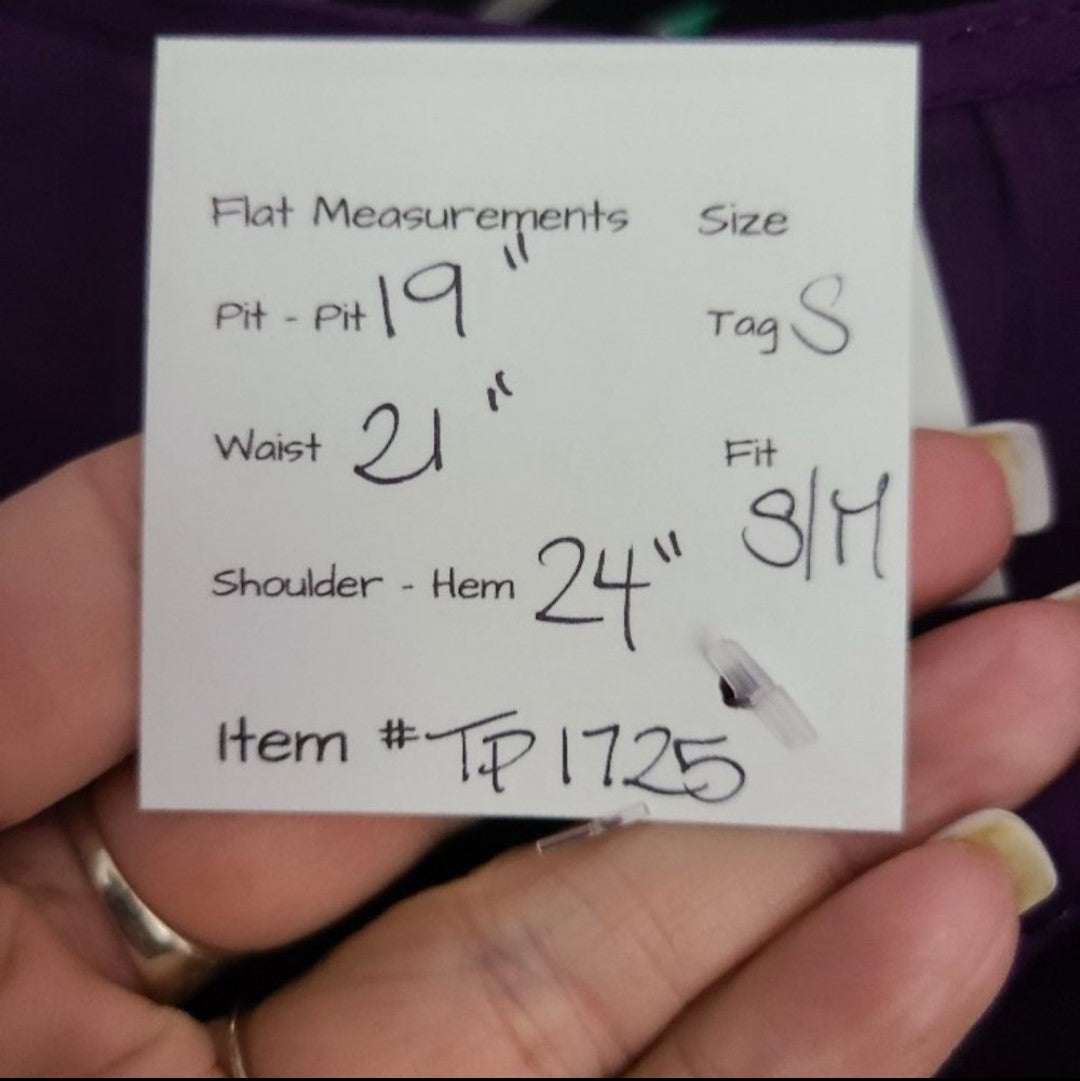 Flat Measurements Size
Pit - Pit 19" Tag S
Waist 21" Fit
S/M
Shoulder - Hem 24"
Item # TP1725